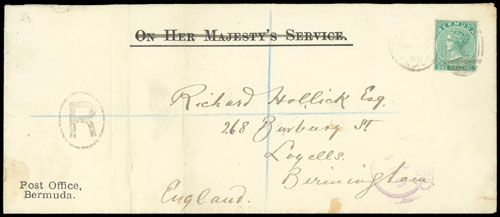 On Her Majesty's Service.
BERMUDA
ONE SHILLING
Richard Hollick Esq.
268 Burbury St
R
Lozells.
Birmingham.
Post Office,
Bermuda.
England.